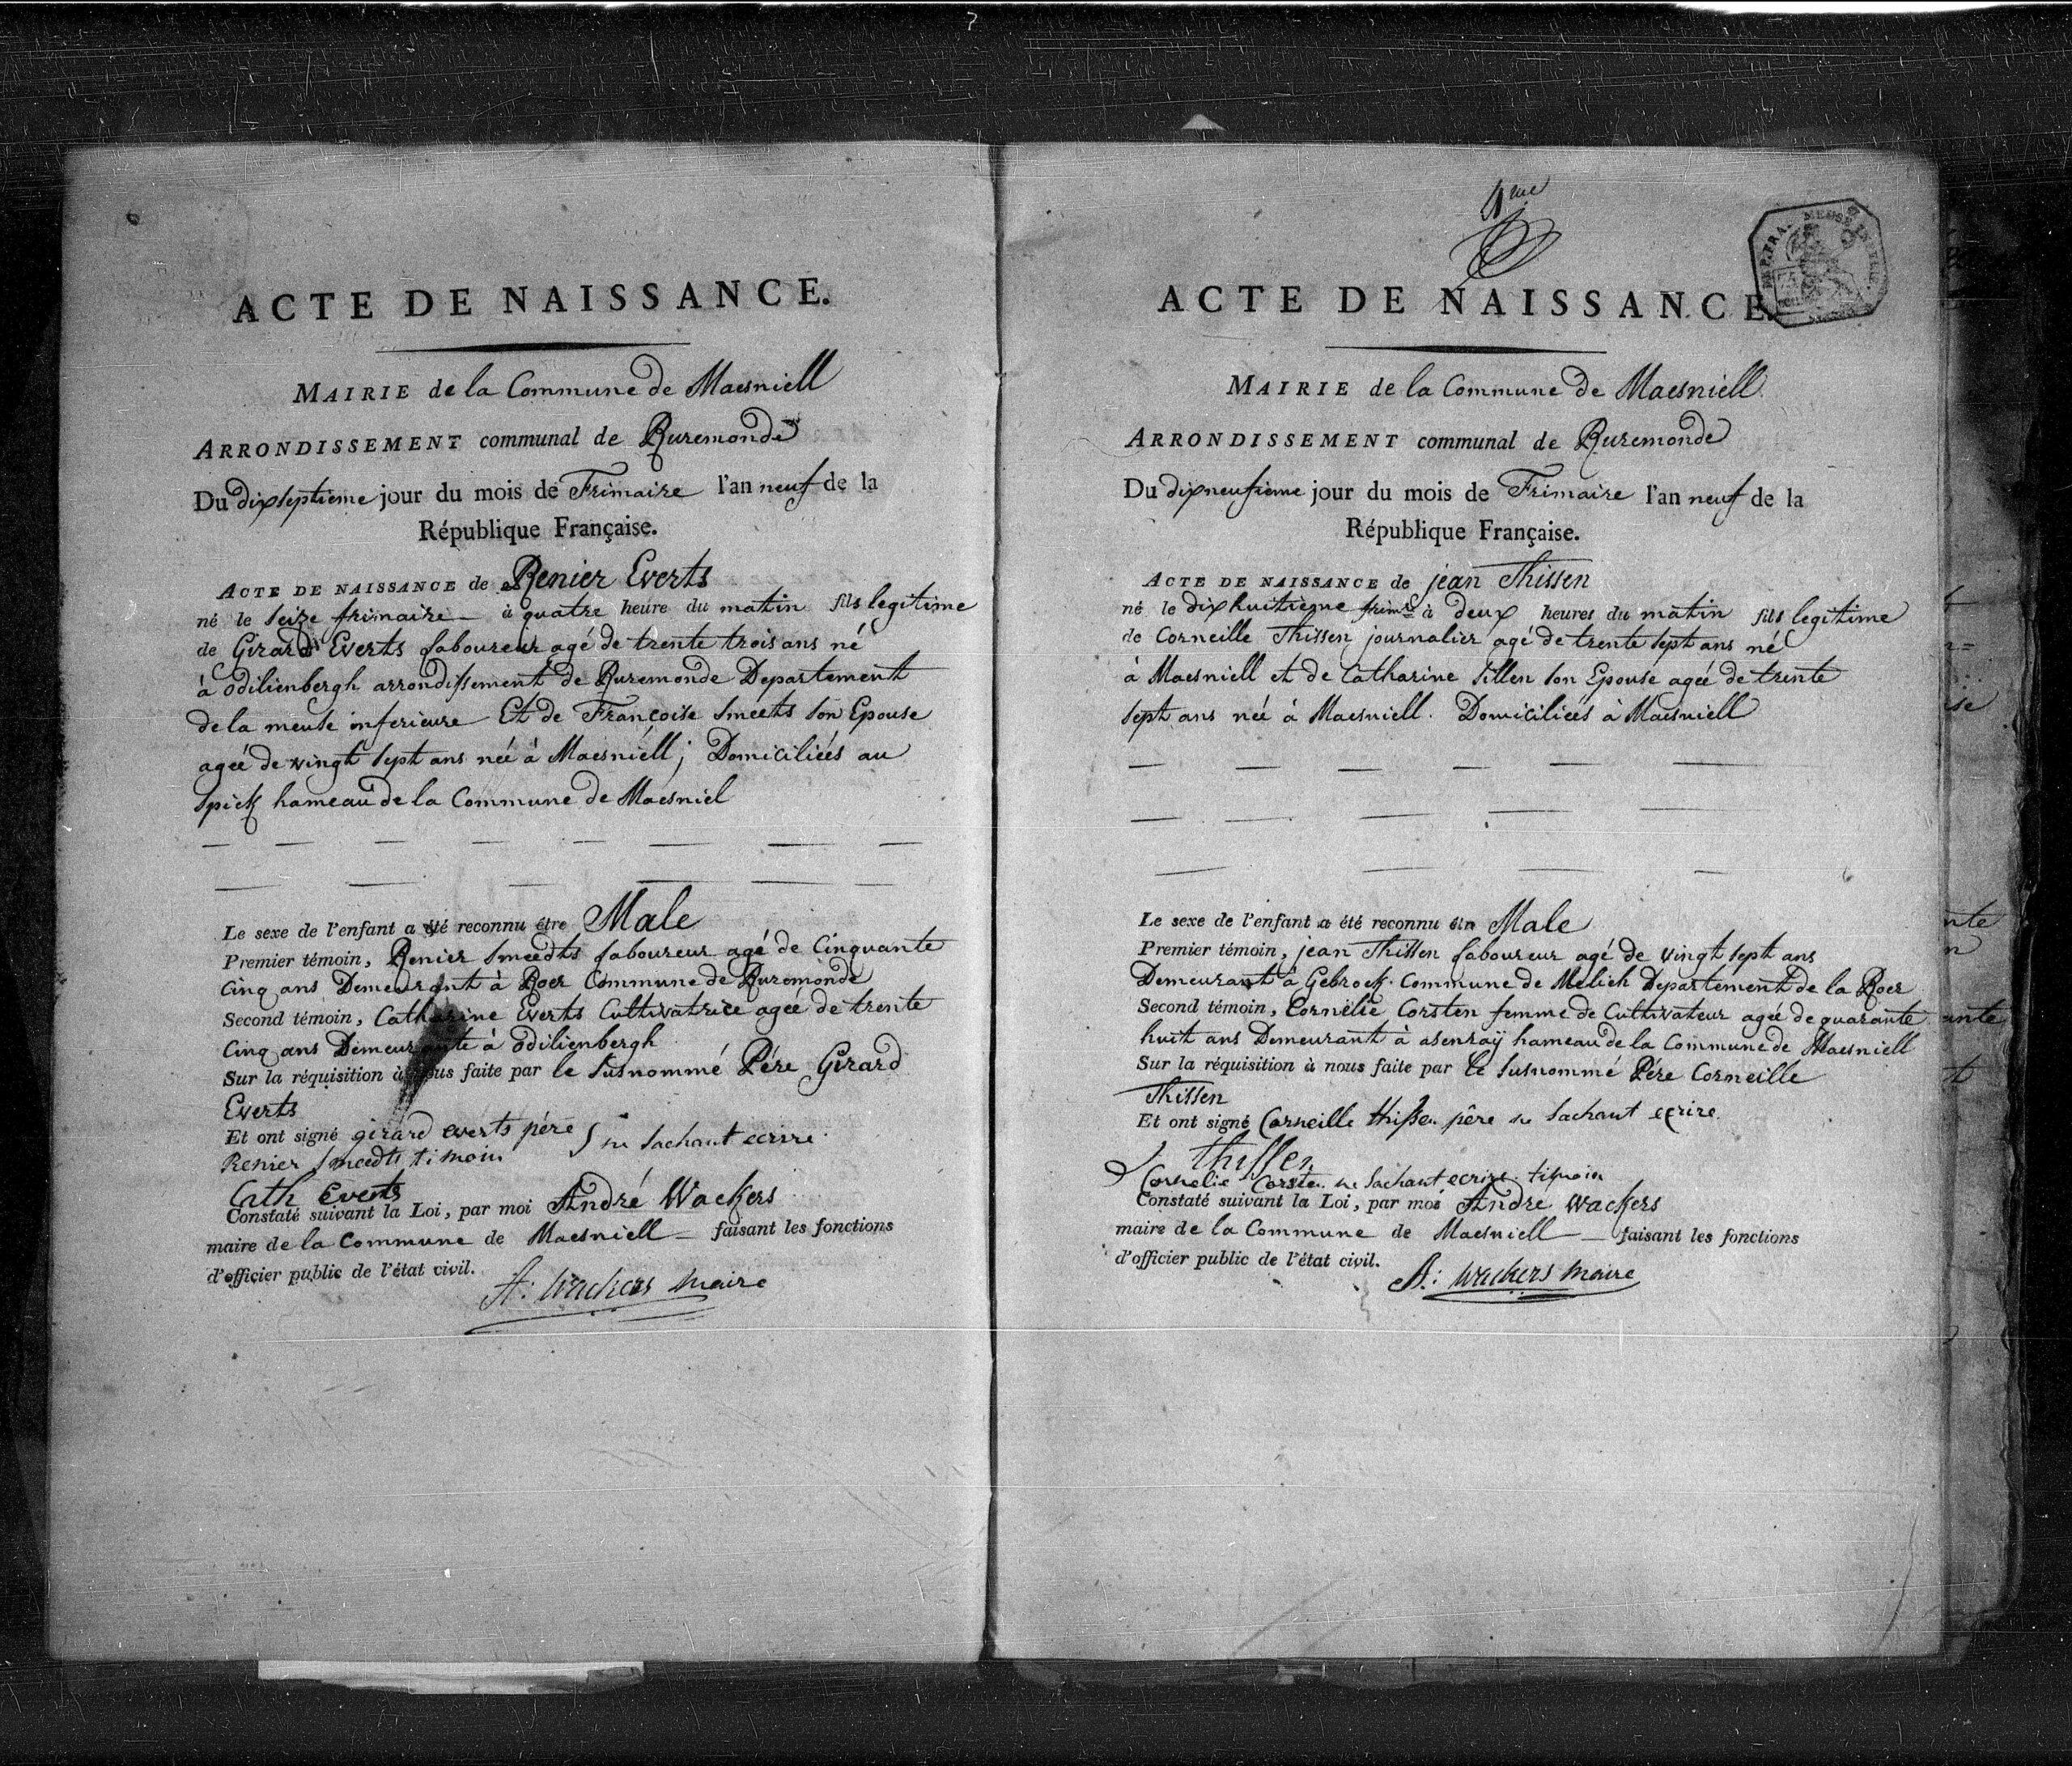 ACTE DE NAISSANCE.
MAIRIE de la Commune de Maesniell
ARRONDISSEMENT communal de Ruremonde
Du dixseptieme jour du mois de Frimaire l'an neuf de la
République Française.
ACTE DE NAISSANCE de Renier Everts
né le seize frimaire à quatre heure du matin fils legitime
de Girard Everts laboureur agé de trente trois ans né
à Odilienbergh arrondissement de Ruremonde Departement
de la meuse inferieure Et de Françoise Smeets son Epouse
ageé de vingt sept ans neé à Maesniell; Domiciliés au
Spick hameau de la Commune de Maesniel
Le sexe de l'enfant a été reconnu être Male
Premier témoin, Renier Smeedts laboureur agé de Cinquante
Cinq ans Demeurant à Roer Commune de Ruremonde
Second témoin, Catharine Everts Cultivatrice ageé de trente
Cinq ans Demeurante à Odilienbergh
Sur la réquisition à nous faite par le susnommé Pére Girard
Everts
Et ont signé girard everts pére
Renier Smeedts timoin ne sachant ecrire.
Cath Everts
Constaté suivant la Loi, par moi André Wackers
maire de la Commune de Maesniell faisant les fonctions
d'officier public de l'état civil.
A: Wackers maire
4me
MEUSE
ACTE DE NAISSANCE.
MAIRIE de la Commune de Maesniell
ARRONDISSEMENT communal de Ruremonde
Du dixneufieme jour du mois de Frimaire l'an neuf de la
République Française.
ACTE DE NAISSANCE de jean Thissen
né le dixhuitieme frimre à deux heures du matin fils legitime
de Corneille Thissen journalier agé de trente sept ans né
à Maesniell et de Catharine Sillen son Epouse ageé de trente
sept ans neé à Maesniell. Domiciliés à Maesniell
Le sexe de l'enfant a été reconnu êtn Male
Premier témoin, jean Thissen laboureur agé de vingt sept ans
Demeurant à Gebroek Commune de Melich Departement de la Roer
Second témoin, Cornelie Corsten femme de Cultivateur ageé de quarante
huit ans Demeurant à asenraÿ hameau de la Commune de Maesniell
Sur la réquisition à nous faite par le susnommé Pére Corneille
Thissen
Et ont signé Corneille thissen pêre ne sachant ecrire.
thissen
Cornelie Corsten ne sachant ecrire timoin
Constaté suivant la Loi, par moi Andre Wackers
maire de la Commune de Maesniell faisant les fonctions
d'officier public de l'état civil.
A: Wackers maire